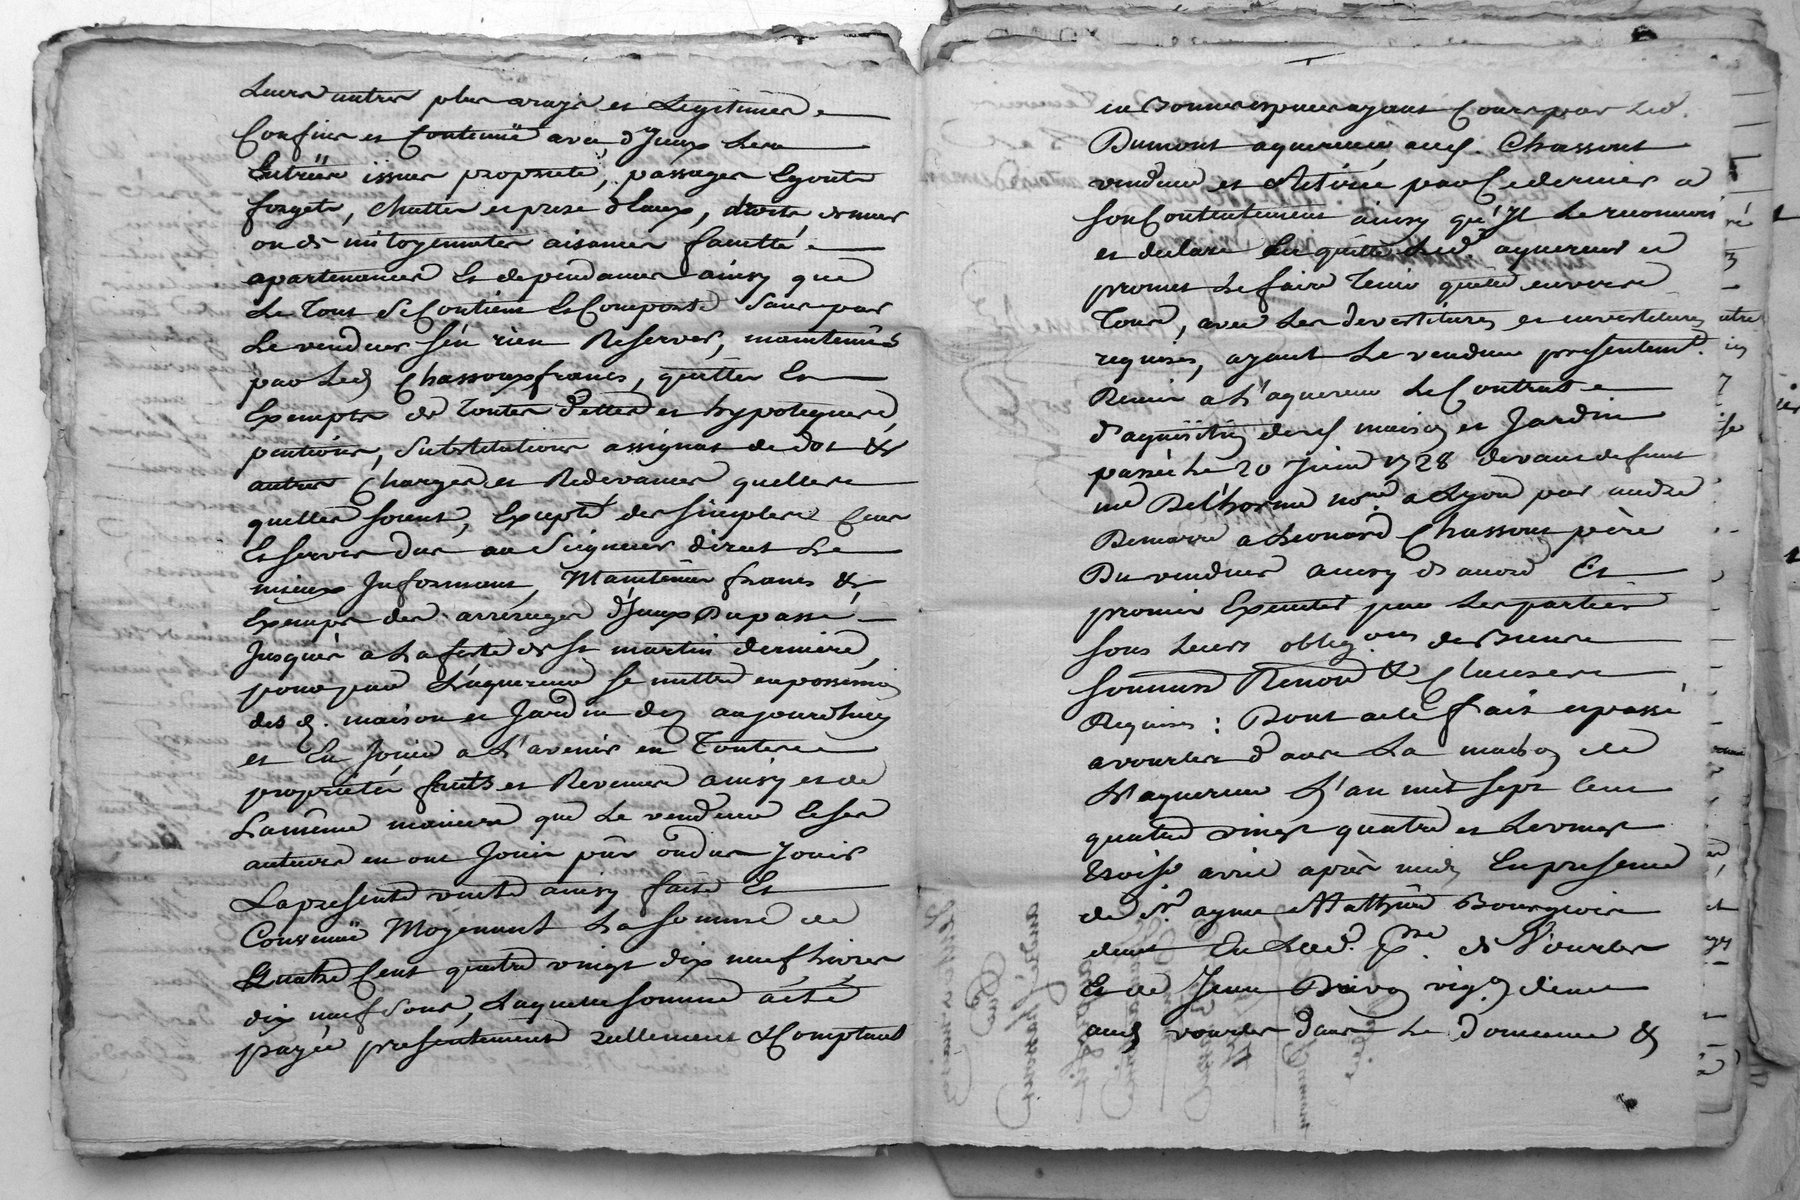 Leurs autres plus vrays et Legitimes
Confins et Contenüe avec d'Yceux Leurs
Entrées issues proprieté, passages Egouts
forgets, chuttes et prise d'Eaux, droits de murs
ou de mitoyennetes aisances facultté
apartenances Et dependances ainsy que
Le Tout Se Contient Et Comporte Sans par
Le vendeur s'en rien Reserver, maintenus
par Led Chassoux francs, quitte Et
Exempts de Toutes dettes et hypoteques
pentions, Substitutions assignat de dot &
autres Charges et Redevances quelles
quelles soient, Excepté des simples Cens
Et servis dus au Seigneur direct Le
mieux Informant, Maintenus francs &
Exempts des arrerages d'Yceux Du passé
Jusques a La feste de st martin derniere,
pour par L'aquereur se mettre en possession
des d. maison et Jardin dez aujourdhuy
et En Jouir a L'avenir en Toutes
proprietés fruits et Revenus ainsy et de
La même maniere que Le vendeur Et ses
auteurs en ont Joui pûs ou dus Jouir
La presente vente ainsy faite Et
Convenüe Moyenant La somme de
Quatre Cent quatre vingt dix neuf Livres
dix neuf Sous, Laquelle somme a été
payée presentement réellement & Comptant
en Bonnes especes ayant Cours par Led.
Dumont aquereur aud. Chassout
vendeur et Retirée par Ce dernier a
son Contentement ainsy qu'Il Le reconnoit
et declare En quitte Led. aquereur et
promet Le faire Tenir quitte envers
Tous, avec Les devestitures et investitures
requises, ayant Le vendeur presentemt.
Remis a L'aquereur Le Contrat
d'aquisition desd maison et Jardin
passé Le 20 Juin 1728 devant defunt
me Delhorme nore. a Lyon par andre
Demarre a Leonard Chassout père
Du vendeur ainsy d'acord Et
promis Executer par Les parties
sous Leurs obligons de Biens
soumissn Renon & Clauses
Requises : Dont acte fait et passé
a vourles dans La maison de
L'aquereur L'an mil sept Cent
quatre vingt quatre et Le vingt
Troise avril après midy En presence
de sr. ayme Mathieu Bourgeois
demt En Lad. psse. de Vourles
Et de Jean vigon demt
aud vourles dans Le domaine &